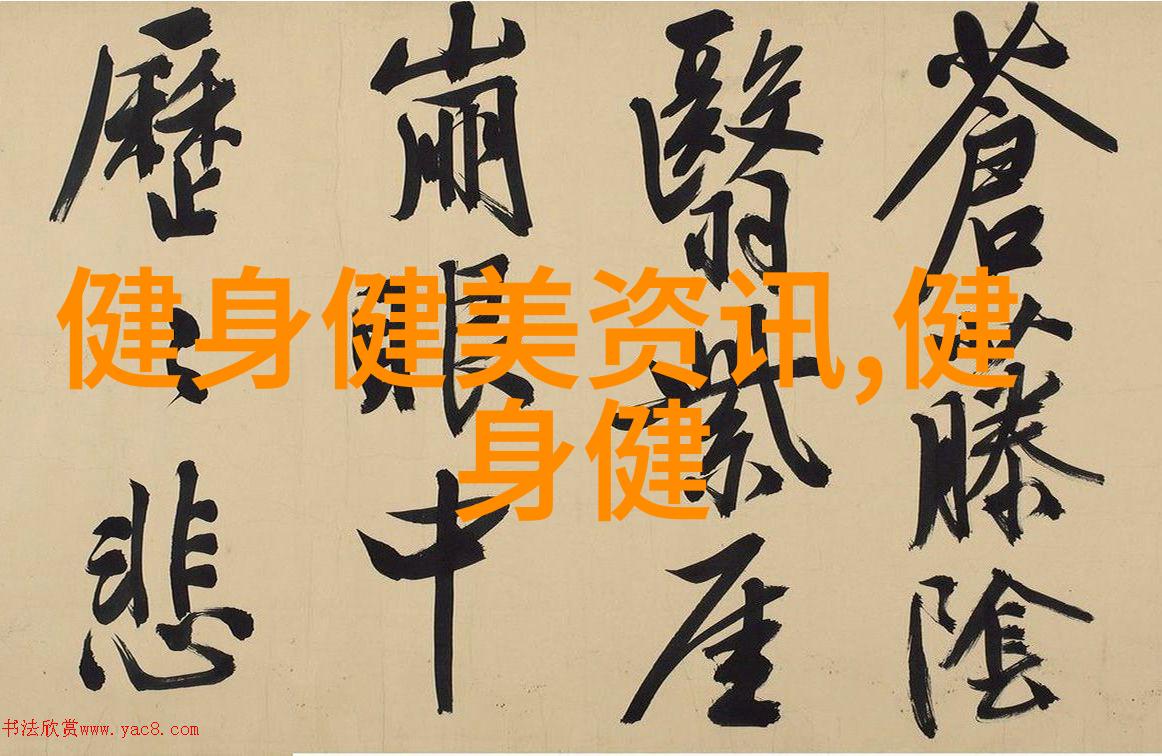 蒼藤陰
翳紫厓
崩眼中
歷〻悲
健身健美资讯,健
身健
书法欣赏www.yac8.com